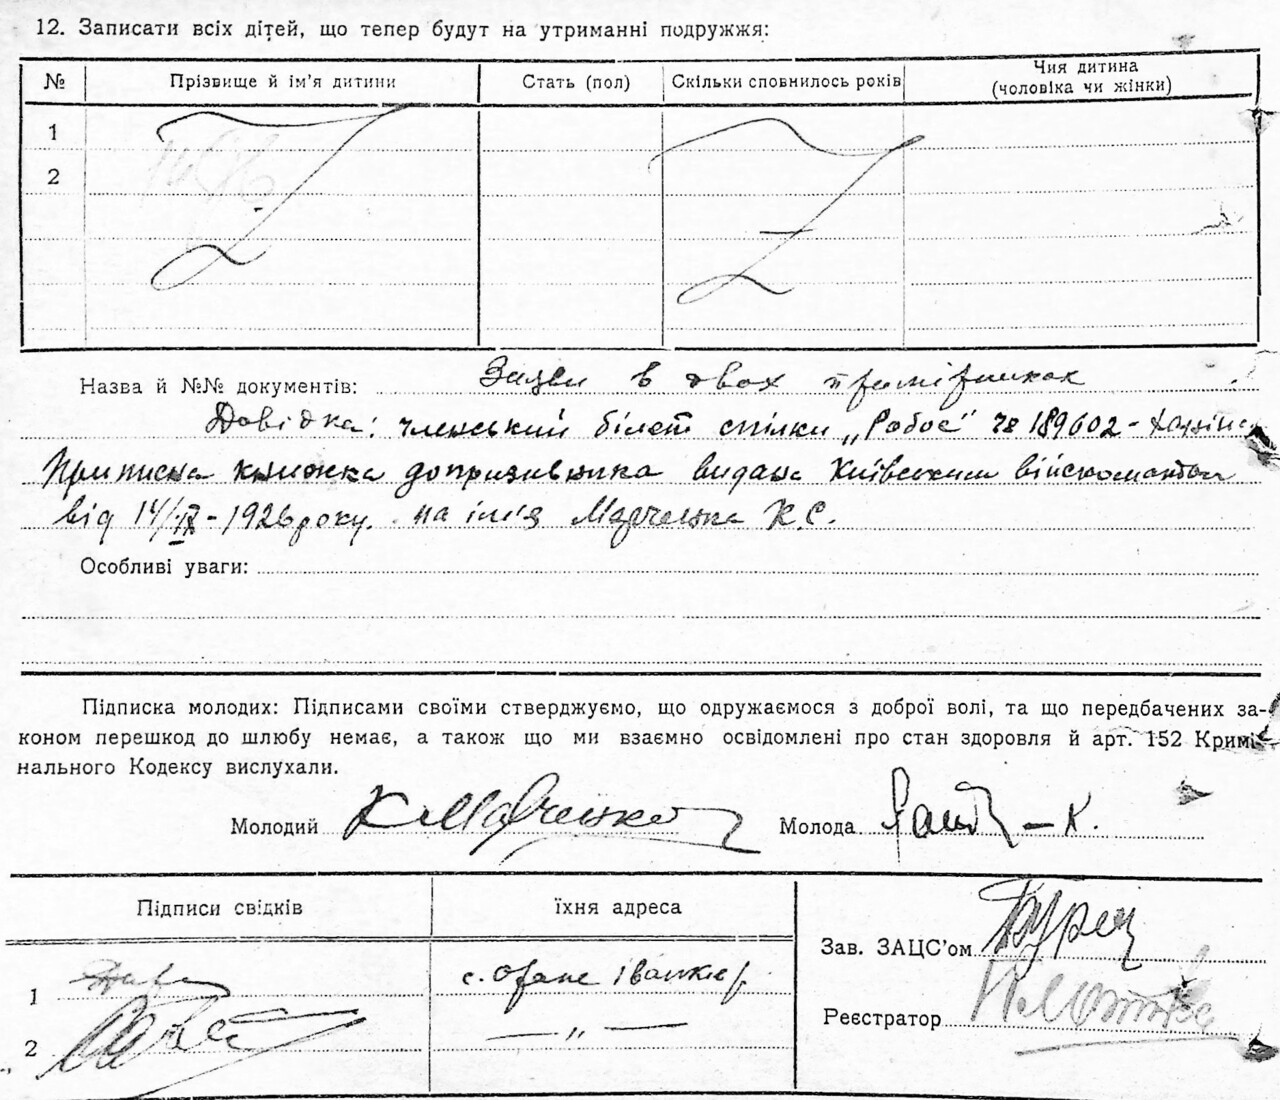 12. Записати всіх дітей, що тепер будут на утриманні подружжя:
№ Прізвище й ім'я дитини Стать (пол) Скільки сповнилось років Чия дитина (чоловіка чи жінки)
1
2
Назва й №№ документів: Заяви в двох примірниках
Довідка: членський білет спілки „Робос" № 189602 -
Приписна книжка допризивника видана Київським
від 14/IX - 1926 року. на ім'я Марченка К.С.
Особливі уваги:
Підписка молодих: Підписами своїми стверджуємо, що одружаємося з доброї волі, та що передбачених за-
коном перешкод до шлюбу немає, а також що ми взаємно освідомлені про стан здоровля й арт. 152 Кримі-
нального Кодексу вислухали.
Молодий К Марченко Молода - К.
Підписи свідків їхня адреса
Зав. ЗАЦС'ом
1 с. Оране
Реєстратор
2 — „ —